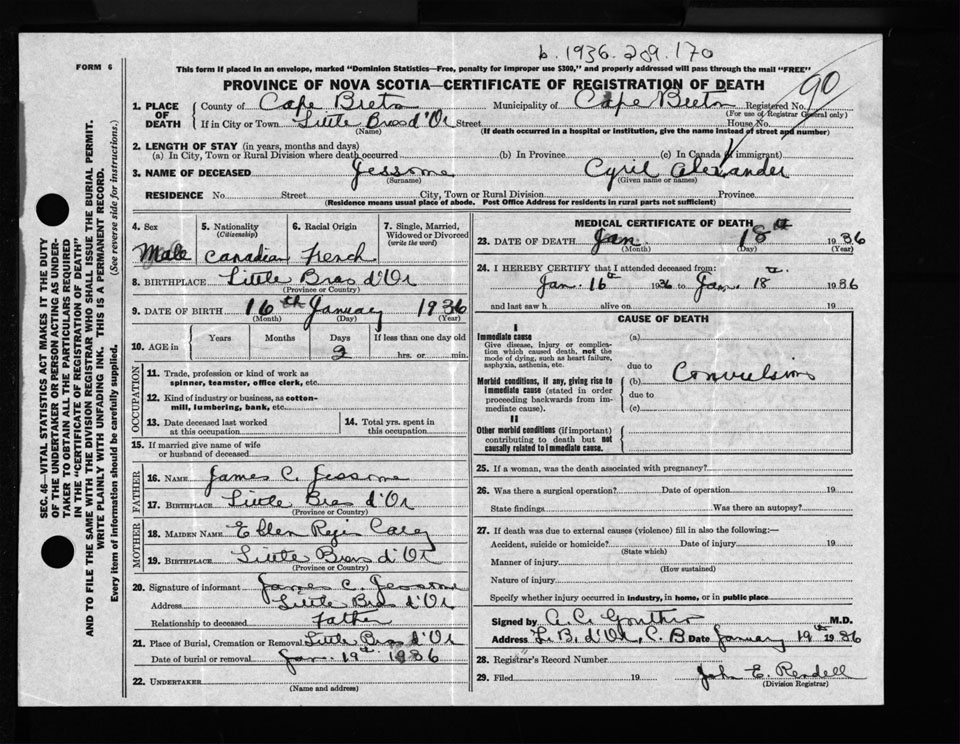 b. 1936. 209. 170
FORM 6
This form if placed in an envelope, marked "Dominion Statistics—Free, penalty for improper use $300," and properly addressed will pass through the mail "FREE"
PROVINCE OF NOVA SCOTIA—CERTIFICATE OF REGISTRATION OF DEATH
90
1. PLACE OF DEATH
County of Cape Breton Municipality of Cape Breton Registered No.
(For use of Registrar General only)
If in City or Town Little Bras d'Or Street House No.
(Name) (If death occurred in a hospital or institution, give the name instead of street and number)
2. LENGTH OF STAY (in years, months and days)
(a) In City, Town or Rural Division where death occurred (b) In Province (c) In Canada (if immigrant)
3. NAME OF DECEASED Jessome Cyril Alexander
(Surname) (Given name or names)
RESIDENCE No. Street City, Town or Rural Division Province
(Residence means usual place of abode. Post Office Address for residents in rural parts not sufficient)
4. Sex
Male
5. Nationality
(Citizenship)
Canadian
6. Racial Origin
French
7. Single, Married, Widowed or Divorced
(write the word)
8. BIRTHPLACE Little Bras d'Or
(Province or Country)
9. DATE OF BIRTH 16th January 1936
(Month) (Day) (Year)
10. AGE in
Years Months Days If less than one day old
2 hrs. or min.
OCCUPATION
11. Trade, profession or kind of work as spinner, teamster, office clerk, etc.
12. Kind of industry or business, as cotton-mill, lumbering, bank, etc.
13. Date deceased last worked at this occupation
14. Total yrs. spent in this occupation
15. If married give name of wife or husband of deceased
FATHER
16. NAME James C. Jessome
17. BIRTHPLACE Little Bras d'Or
MOTHER
18. MAIDEN NAME Ellen
19. BIRTHPLACE Little Bras d'Or
(Province or Country)
20. Signature of informant James C. Jessome
Address Little Bras d'Or
Relationship to deceased Father
21. Place of Burial, Cremation or Removal Little Bras d'Or
Date of burial or removal Jan. 19th 1936
22. UNDERTAKER
(Name and address)
MEDICAL CERTIFICATE OF DEATH
23. DATE OF DEATH Jan. 18th 1936
(Month) (Day) (Year)
24. I HEREBY CERTIFY that I attended deceased from:
Jan. 16th 1936 to Jan. 18th 1936
and last saw h alive on 19
CAUSE OF DEATH
I
Immediate cause
Give disease, injury or complication which caused death, not the mode of dying, such as heart failure, asphyxia, asthenia, etc.
(a)
due to
Morbid conditions, if any, giving rise to immediate cause (stated in order proceeding backwards from immediate cause).
(b) Convulsions
due to
(c)
II
Other morbid conditions (if important) contributing to death but not causally related to immediate cause.
25. If a woman, was the death associated with pregnancy?
26. Was there a surgical operation? Date of operation 19
State findings Was there an autopsy?
27. If death was due to external causes (violence) fill in also the following:—
Accident, suicide or homicide? Date of injury 19
(State which)
Manner of injury
(How sustained)
Nature of injury
Specify whether injury occurred in industry, in home, or in public place
Signed by M.D.
Address L. B. d'Or, C. B Date January 19th 1936
28. Registrar's Record Number
29. Filed 19 John E. Rendell
(Division Registrar)
SEC. 46—VITAL STATISTICS ACT MAKES IT THE DUTY
OF THE UNDERTAKER OR PERSON ACTING AS UNDER-
TAKER TO OBTAIN ALL THE PARTICULARS REQUIRED
IN THE "CERTIFICATE OF REGISTRATION OF DEATH"
AND TO FILE THE SAME WITH THE DIVISION REGISTRAR WHO SHALL ISSUE THE BURIAL PERMIT.
WRITE PLAINLY WITH UNFADING INK. THIS IS A PERMANENT RECORD.
Every item of information should be carefully supplied. (See reverse side for instructions.)